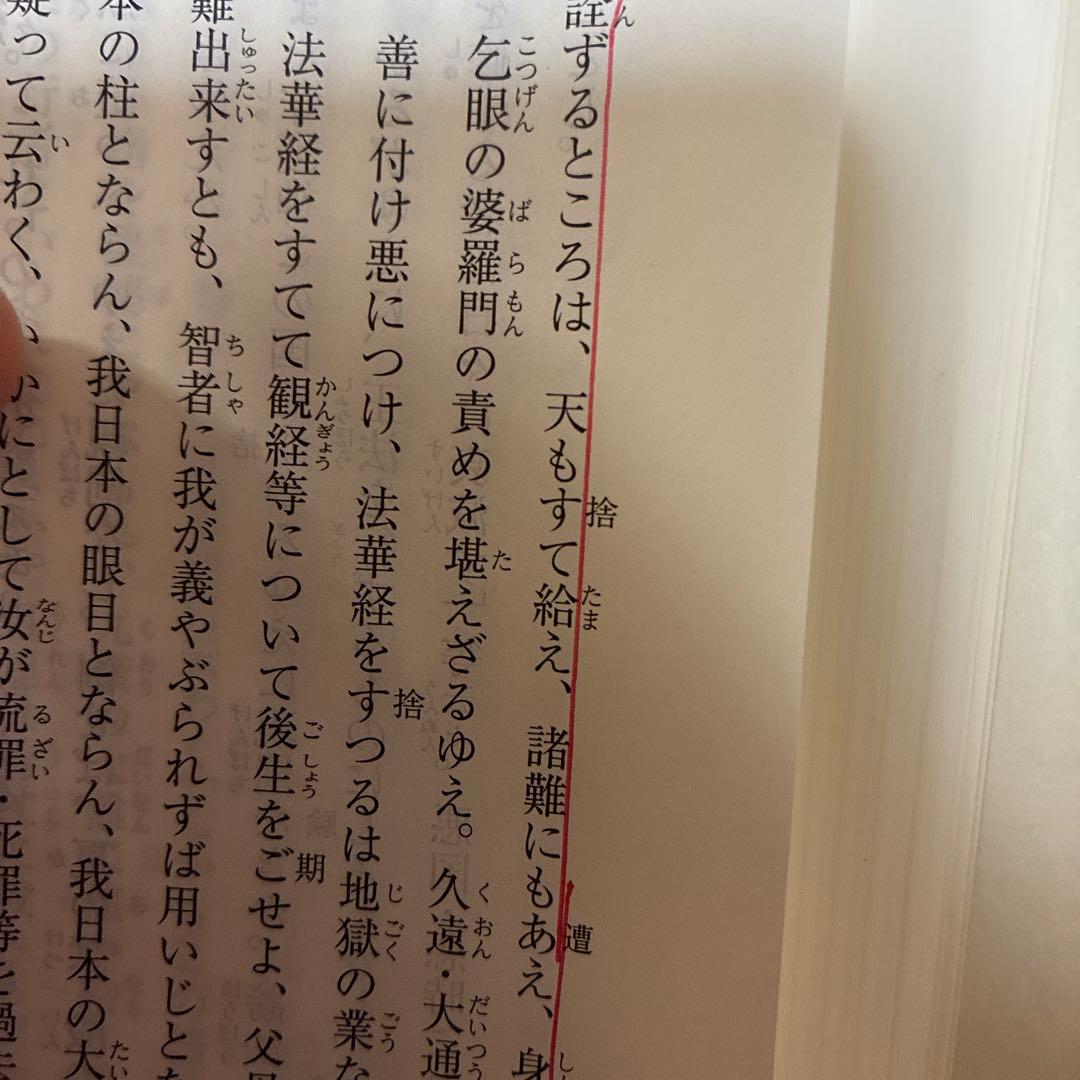 詮ずるところは、天もすて給え、諸難にもあえ、身
乞眼の婆羅門の責めを堪えざるゆえ。久遠・大通
善に付け悪につけ、法華経をすつるは地獄の業な
法華経をすてて観経等について後生をごせよ、父
難出来すとも、智者に我が義やぶられずば用いじとな
本の柱とならん、我日本の眼目とならん、我日本の大
疑って云わく、いかにとして汝が流罪・死罪等を過去